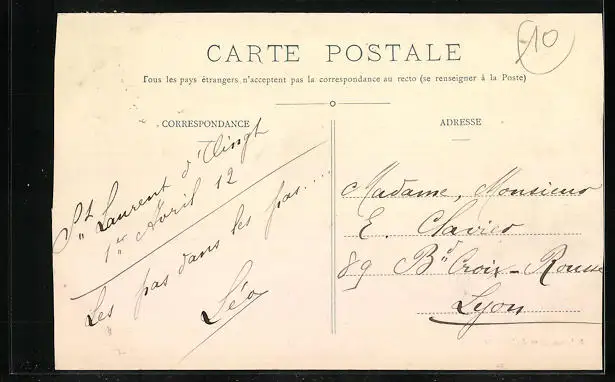 CARTE POSTALE
Tous les pays étrangers n'acceptent pas la correspondance au recto (se renseigner à la Poste)
CORRESPONDANCE
ADRESSE
£10
St Laurent d'Oingt
1er Avril 12
Les pas dans les pas....
Léo
Madame, Monsieur
E. Clavier
89 Bd Croix-Rousse
Lyon